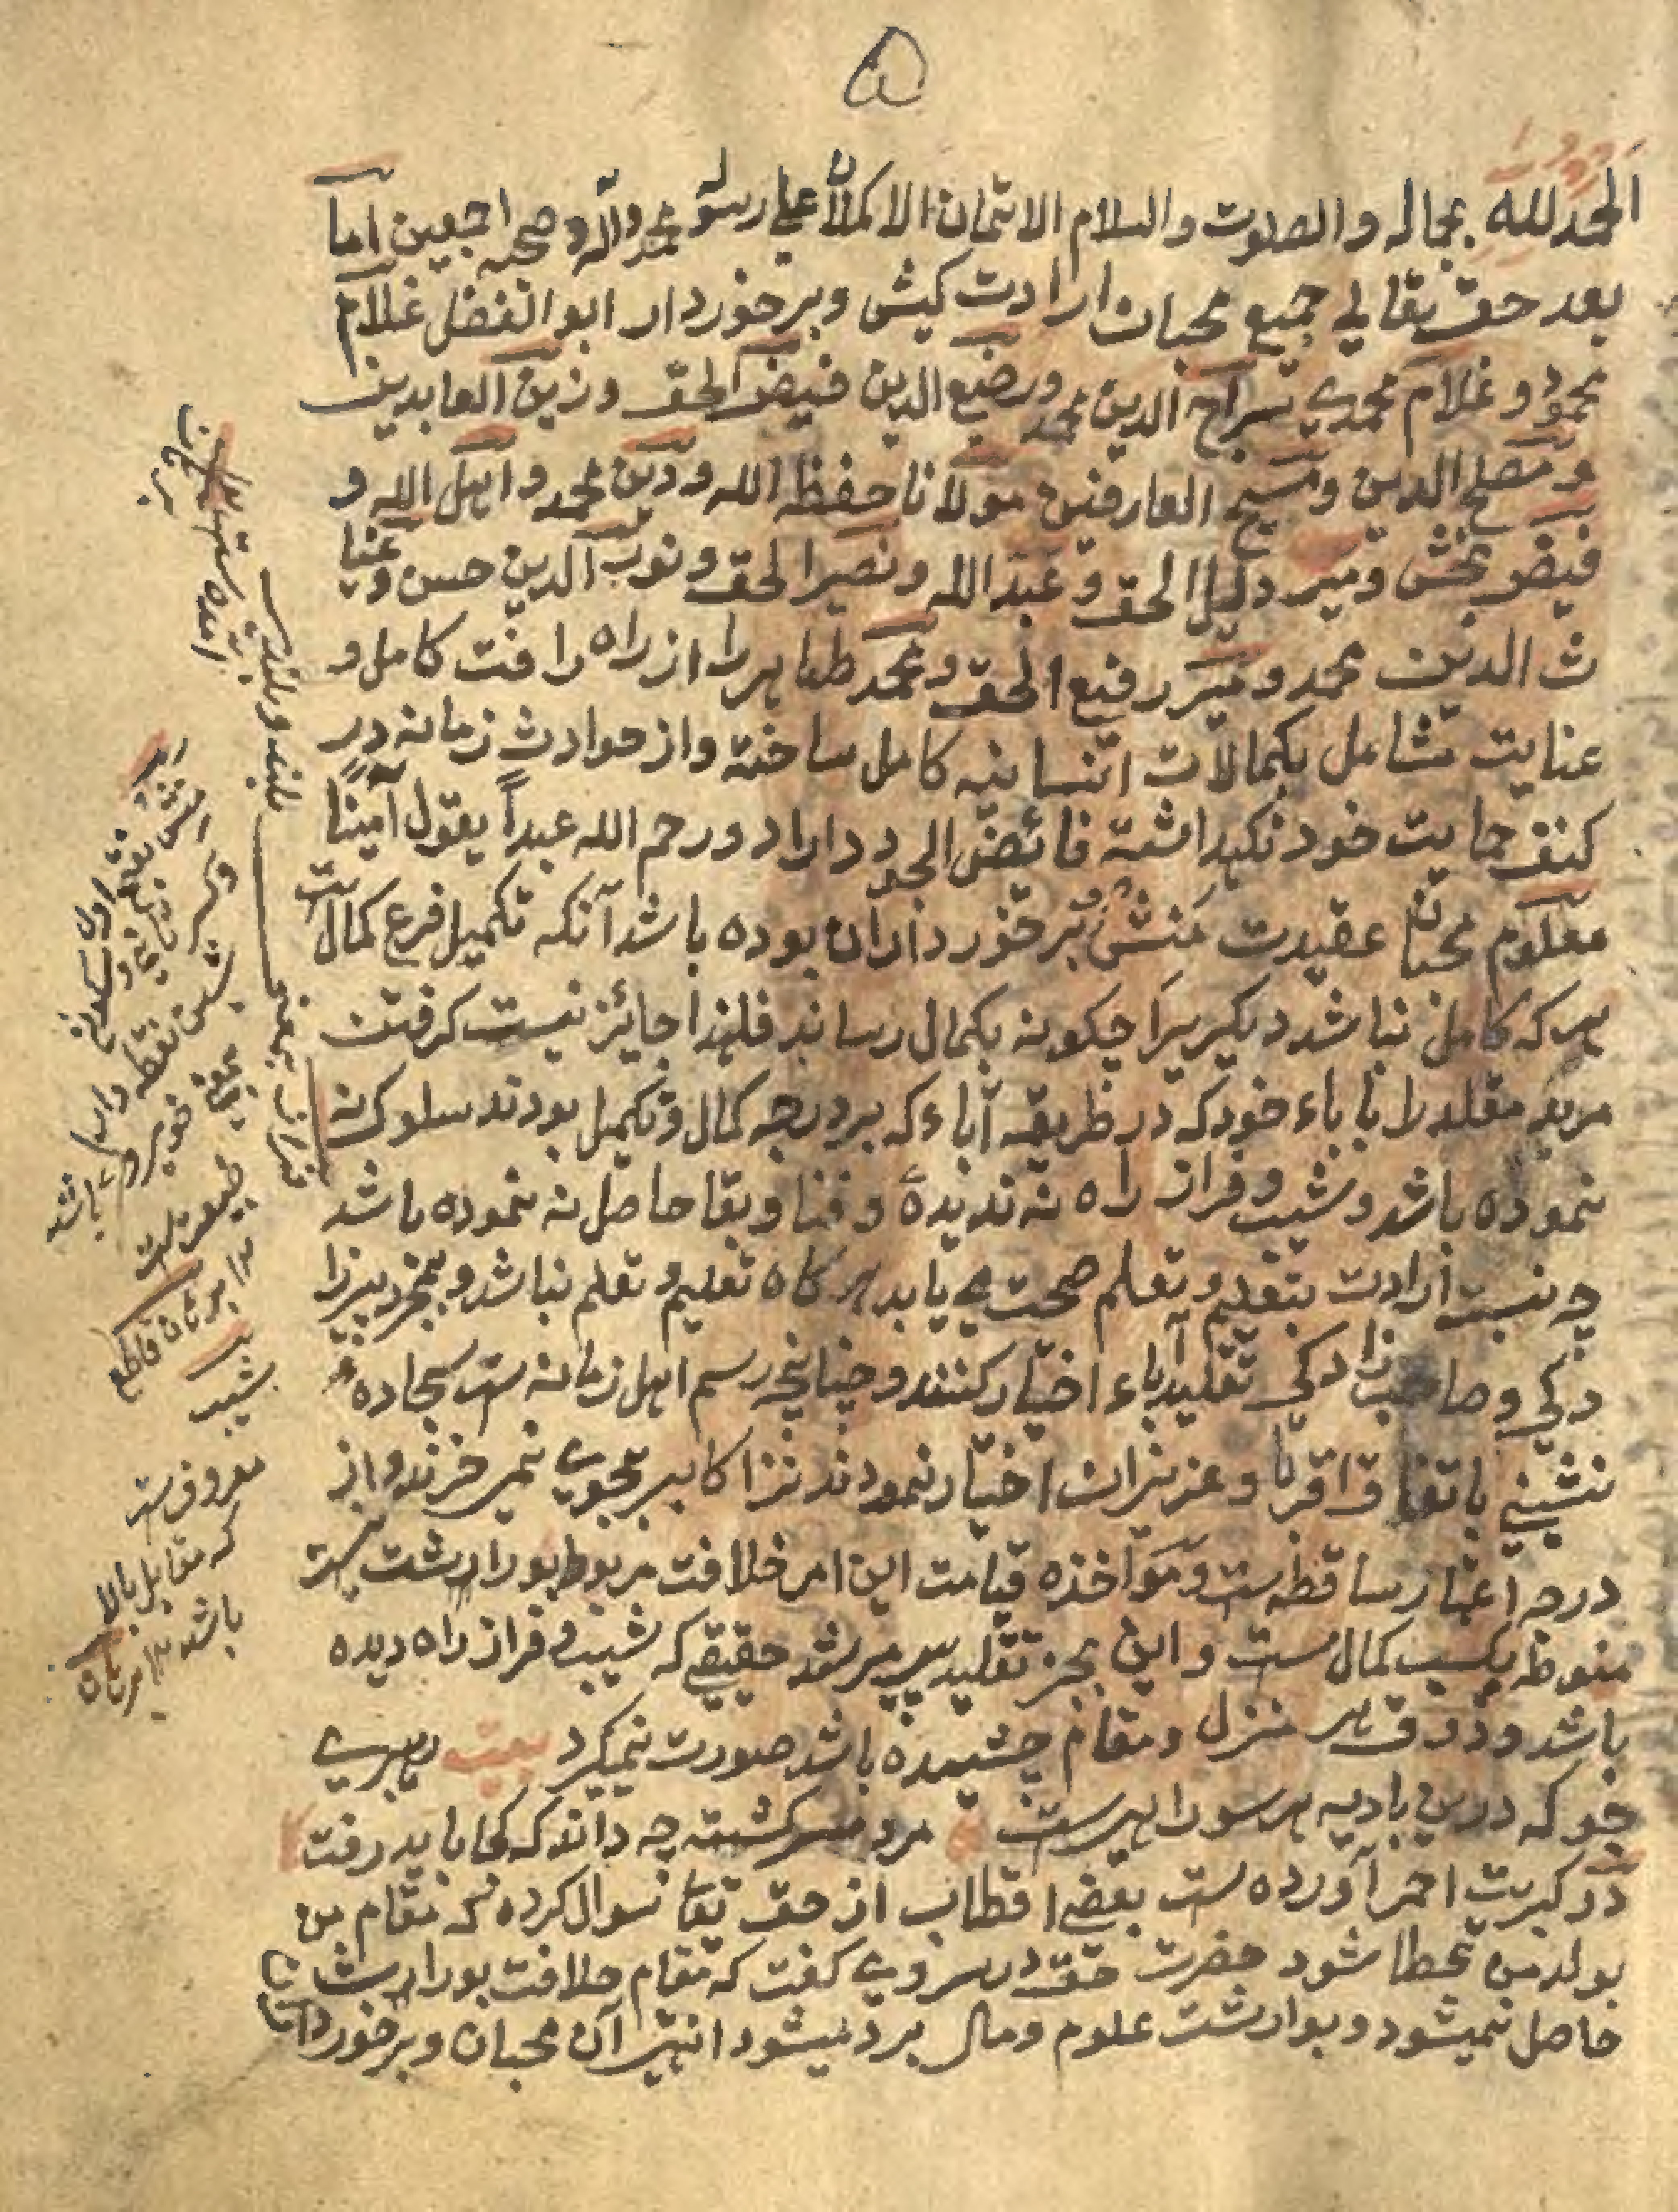 ۵
الحمد لله بجماله والصلوت والسلام الاتمان الاکملان علی رسوله محمد وآله وصحبه اجمعین اما
بعد حق تعالی جمیع محبان ارادت کیش وبرخوردار ابو الفضل غلام
محمود و غلام محمدی سراج الدین محمد ورضیع الدین فیض الحق وزین العابدین
ومصلح الدین ومسیح العارفین مولانا حفظ الله ودین محمد واهل الله و
فیض بخش ومیر دلیل الحق وعبد الله ونصیر الحق ونور الدین حسن وغیا
ث الدین محمد ومیر رفیع الحق ومحمد طاهر را از راه رافت کامل و
عنایت شامل بکمالات انسانیه کامل ساخته واز حوادث زمانه در
کنف حمایت خود نکهداشته فائض الجود داراد ورحم الله عبداً یقول آمینا
معلوم محبان عقیدت منش برخورداران بوده باشد آنکه تکمیل فرع کمالات
هر که کامل نباشد دیکریرا چکونه بکمال رساند فلهذا جائز نیست کرفتن
مرید مقلد را باباء خود که در طریقه آباء که بردرجه کمال وتکمیل بودند سلوک نه
نموده باشد وشیب وفراز راه نه ندیده و فنا وبقا حاصل نه نموده باشد
چه نسبت ارادت بتعلیم وتعلم صحت می یابد هر کاه تعلیم وتعلم نباشد وبمجرد پیرزا
دکی وصاحب زادکی تقلید آباء اختیار کنند وچنانچه رسم اهل زمانه ست سجاده
نشینی باتفاق اقربا وعزیزان اختیار نمودند نزد اکابر بجوی نمی خرند واز
درجه اعتبار ساقط ست ومواخذه قیامت این امر خلافت مربوط بوراثت نیست
منوط بکسب کمال ست واین بجز تقلید پیر مرشد حقیقی که شیب وفراز راه دیده
باشد وذوق هر منزل ومقام چشیده باشد صورت نمیکیرد بیت رهبری
جو که درین بادیه هر سو راهیست مرد سرکشته چه داند که کجا باید رفت
در کبریت احمر آورده ست بعضی اقطاب از حق تعا سوال کرده که مقام من
بولد من عطا شود حضرت حق در سر وی کفت که مقام خلافت بوراثت
حاصل نمیشود وبوراثت علوم ومال برد میشود انتهی آن محبان وبرخورداران
بلند و بلندی
فراز بمعنی
نقطه اول
نقطه دار
باشد
برهان قاطع
شیب
معروفست
که مقابل بالا
باشد ۱۲ برهان